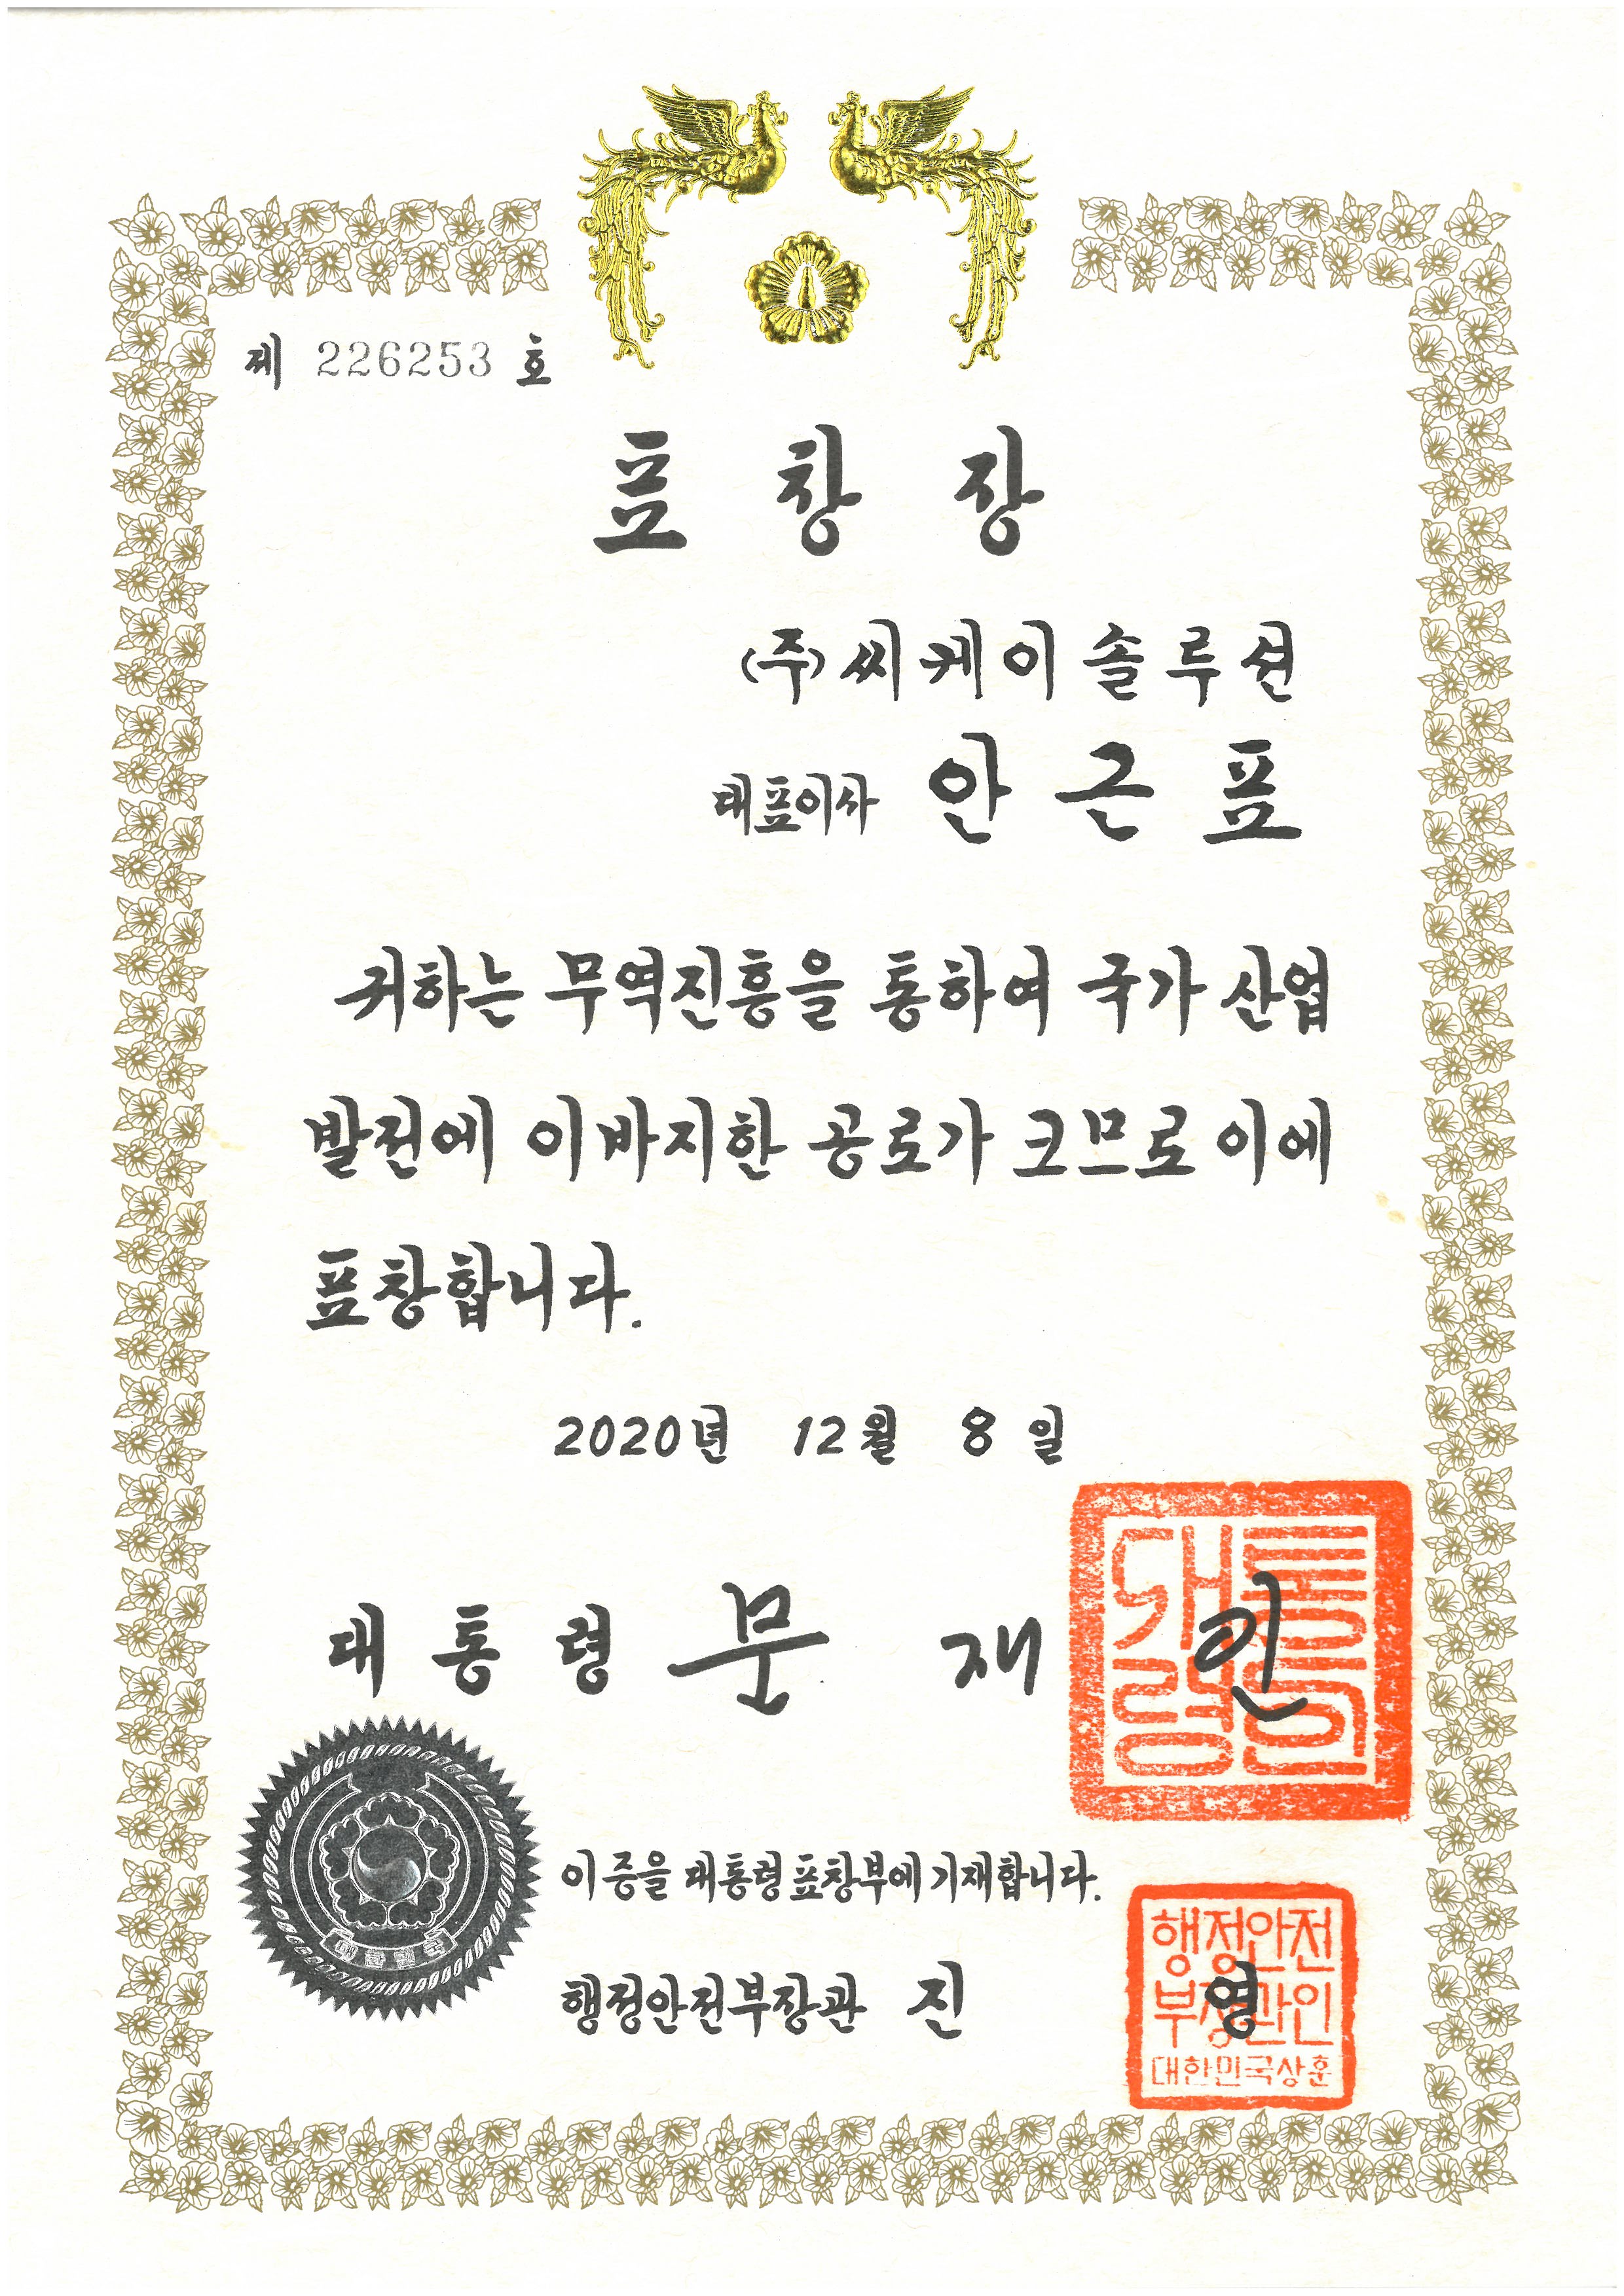 제 226253 호
표 창 장
(주)씨케이솔루션
대표이사 안 근 표
귀하는 무역진흥을 통하여 국가 산업
발전에 이바지한 공로가 크므로 이에
표창합니다.
2020년 12월 8일
대 통 령 문 재 인
대통령인
이 증을 대통령표창부에 기재합니다.
행정안전부장관 진 영
행정안전
부장관인
대한민국상훈
대한민국